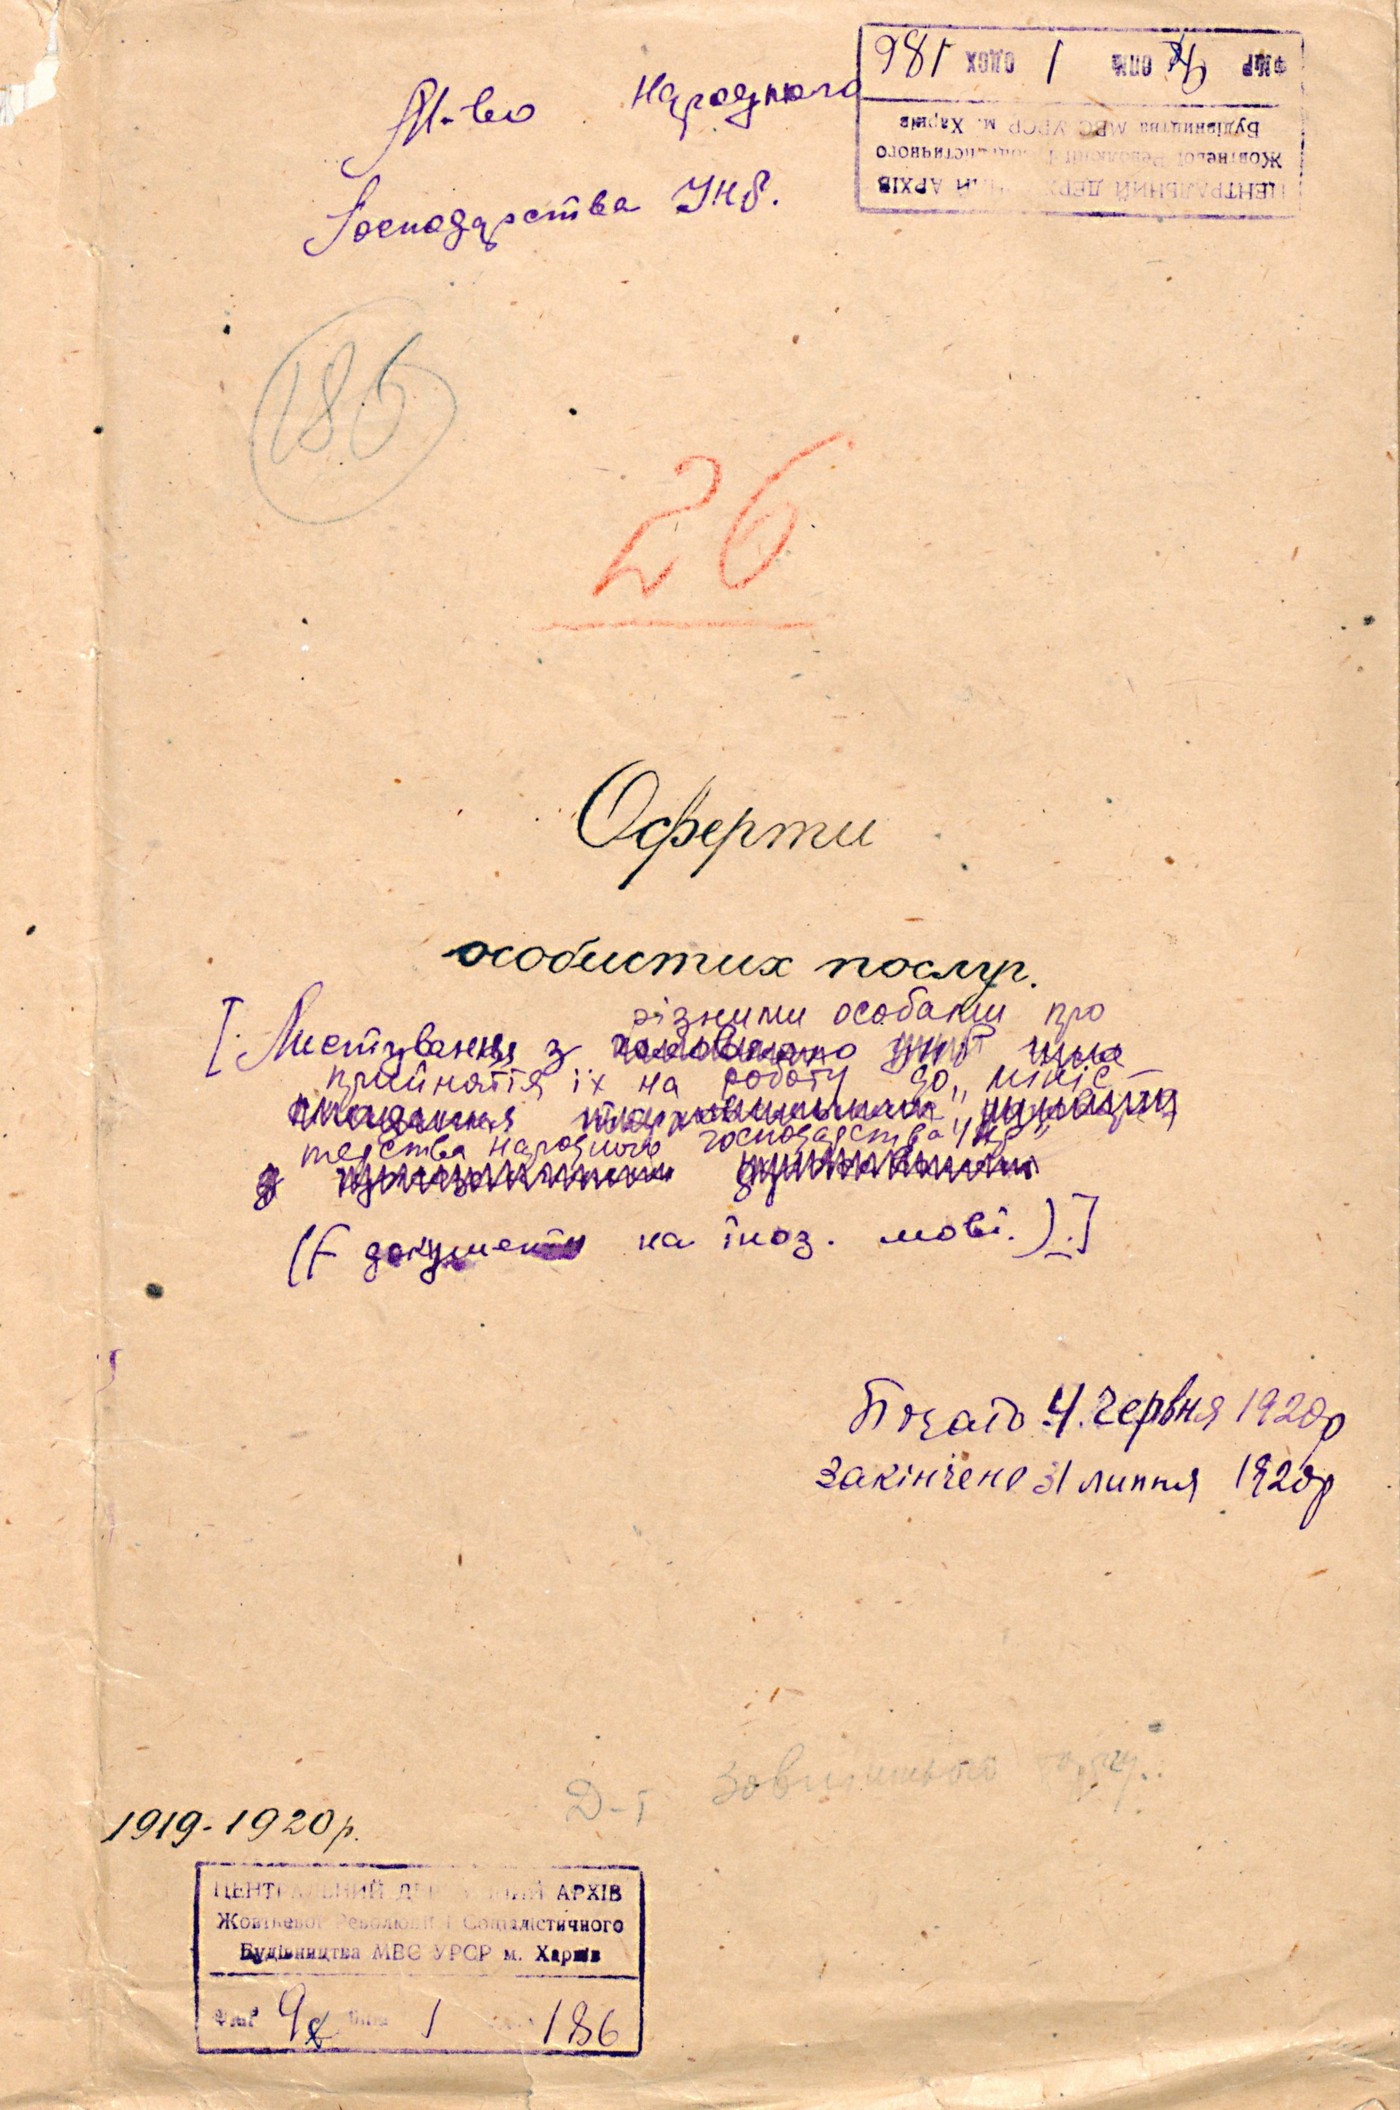 М-во народнього
Господарства УНР.
ЦЕНТРАЛЬНИЙ ДЕРЖ АРХІВ
Жовтневої Революції і Соціалістичного
Будівництва МВС УРСР м. Харків
ФОНД ОПИС 1 ОДОХ 186
186
26
Оферти
особистих послуг.
різними особами про
[Листування з
прийняття їх на роботу до „мініс-
терства народнього господарства УНР"
(Є документи на іноз. мові.).]
Почато 4. червня 1920р
Закінчено 31 липня 1920р
Д-т зовнішнього
1919-1920 р.
ЦЕНТРАЛЬНИЙ ДЕРЖАВНИЙ АРХІВ
Жовтневої Революції і Соціалістичного
Будівництва МВС УРСР м. Харків
1 186